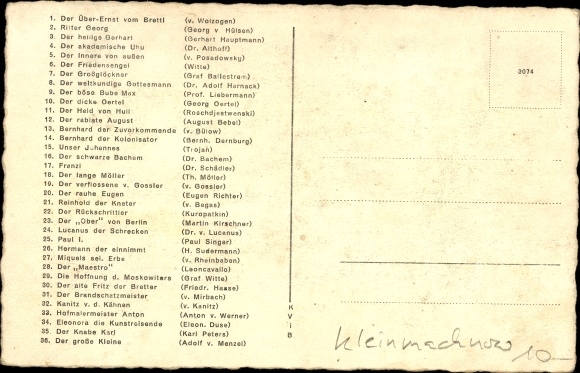 1. Der Über-Ernst vom Brettl (v. Wolzogen)
2. Ritter Georg (Georg v Hülsen)
3. Der heilge Gerhart (Gerhart Hauptmann)
4. Der akademische Uhu (Dr. Althoff)
5. Der Innere von außen (v. Posadowsky)
6. Der Friedensengel (Witte)
7. Der Großglöckner (Graf Ballestrem)
8. Der weltkundige Gottesmann (Dr. Adolf Harnack)
9. Der böse Bube Max (Prof. Liebermann)
10. Der dicke Oertel (Georg Oertel)
11. Der Held von Hull (Roschdjestwenski)
12. Der rabiate August (August Bebel)
13. Bernhard der Zuvorkommende (v. Bülow)
14. Bernhard der Kolonisator (Bernh. Dernburg)
15. Unser Johannes (Trojan)
16. Der schwarze Bachem (Dr. Bachem)
17. Franzl (Dr. Schädler)
18. Der lange Möller (Th. Möller)
19. Der verflossene v. Gossler (v. Gossler)
20. Der rauhe Eugen (Eugen Richter)
21. Reinhold der Kneter (v. Begas)
22. Der Rückschrittler (Kuropatkin)
23. Der „Ober" von Berlin (Martin Kirschner)
24. Lucanus der Schrecken (Dr. v. Lucanus)
25. Paul I. (Paul Singer)
26. Hermann der einnimmt (H. Sudermann)
27. Miquels sel. Erbe (v. Rheinbaben)
28. Der „Maestro" (Leoncavallo)
29. Die Hoffnung d. Moskowiters (Graf Witte)
30. Der alte Fritz der Bretter (Friedr. Haase)
31. Der Brandschatzmeister (v. Mirbach)
32. Kanitz v. d. Kähnen (v. Kanitz)
33. Hofmalermeister Anton (Anton v. Werner)
34. Eleonora die Kunstreisende (Eleon. Duse)
35. Der Knabe Karl (Karl Peters)
36. Der große Kleine (Adolf v. Menzel)
K
V
i
B
3074
Kleinmachnow 10-